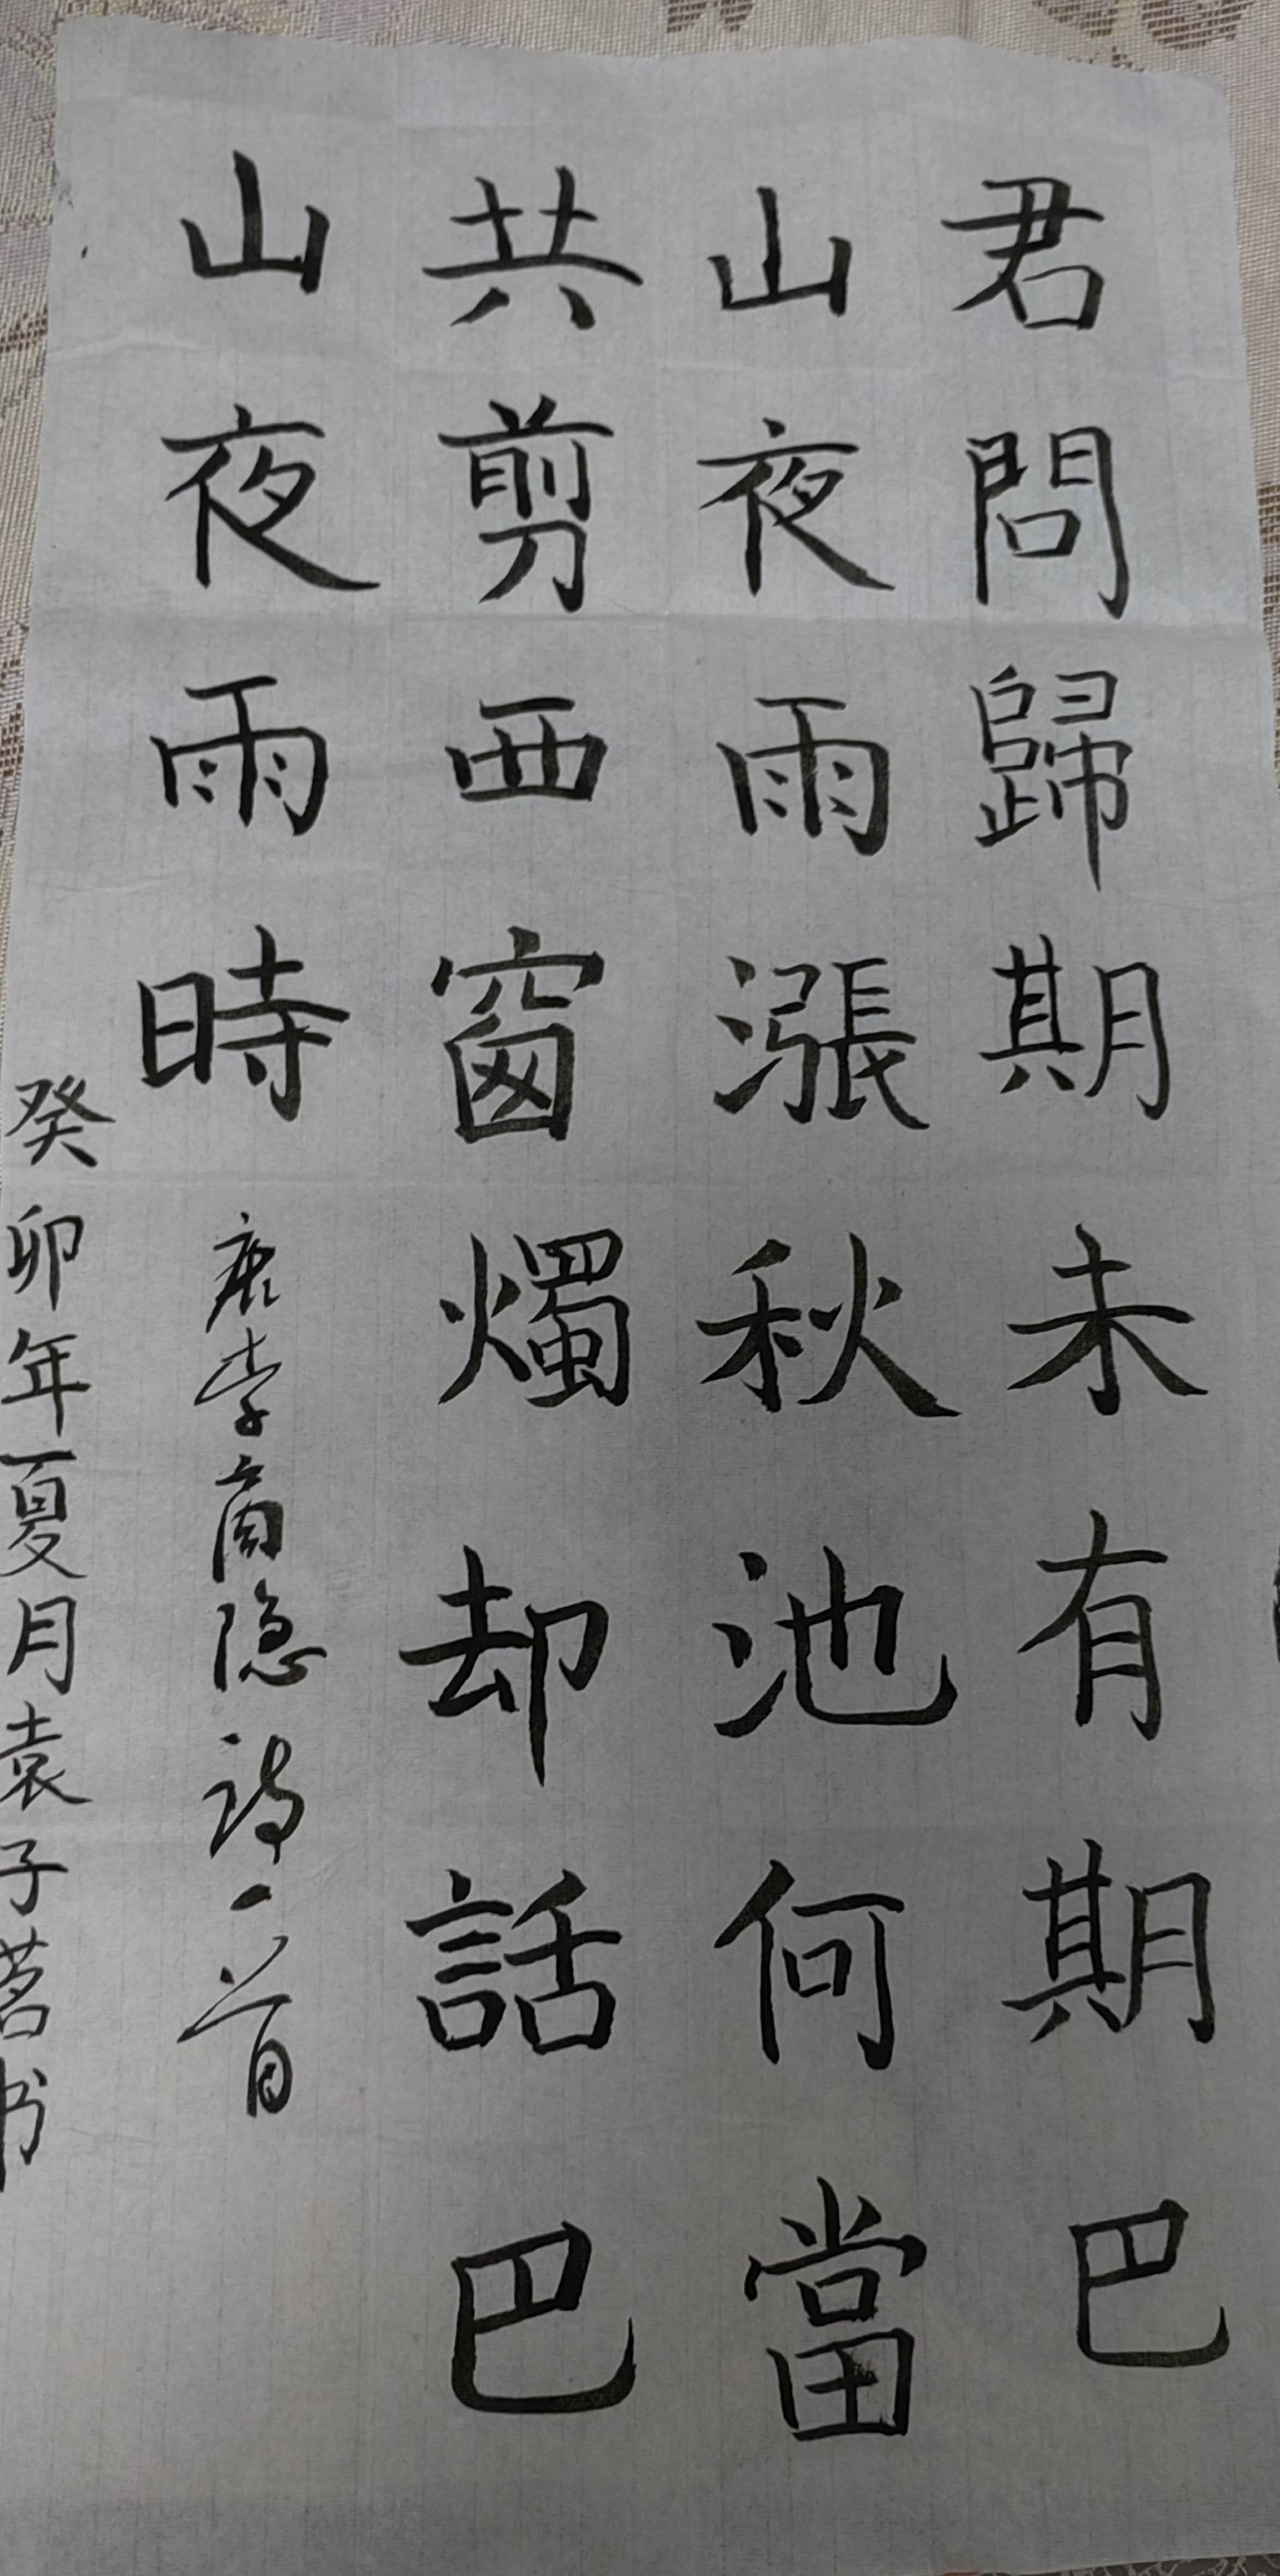 君問歸期未有期巴
山夜雨漲秋池何當
共剪西窗燭却話巴
山夜雨時
唐李商隐詩一首
癸卯年夏月袁子茗书